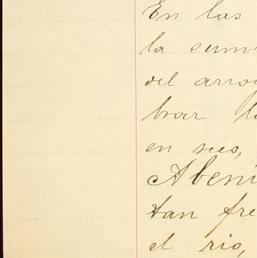 En las
la cum
del arro
brar l
en sus,
Abeni
tan fre
el rio,